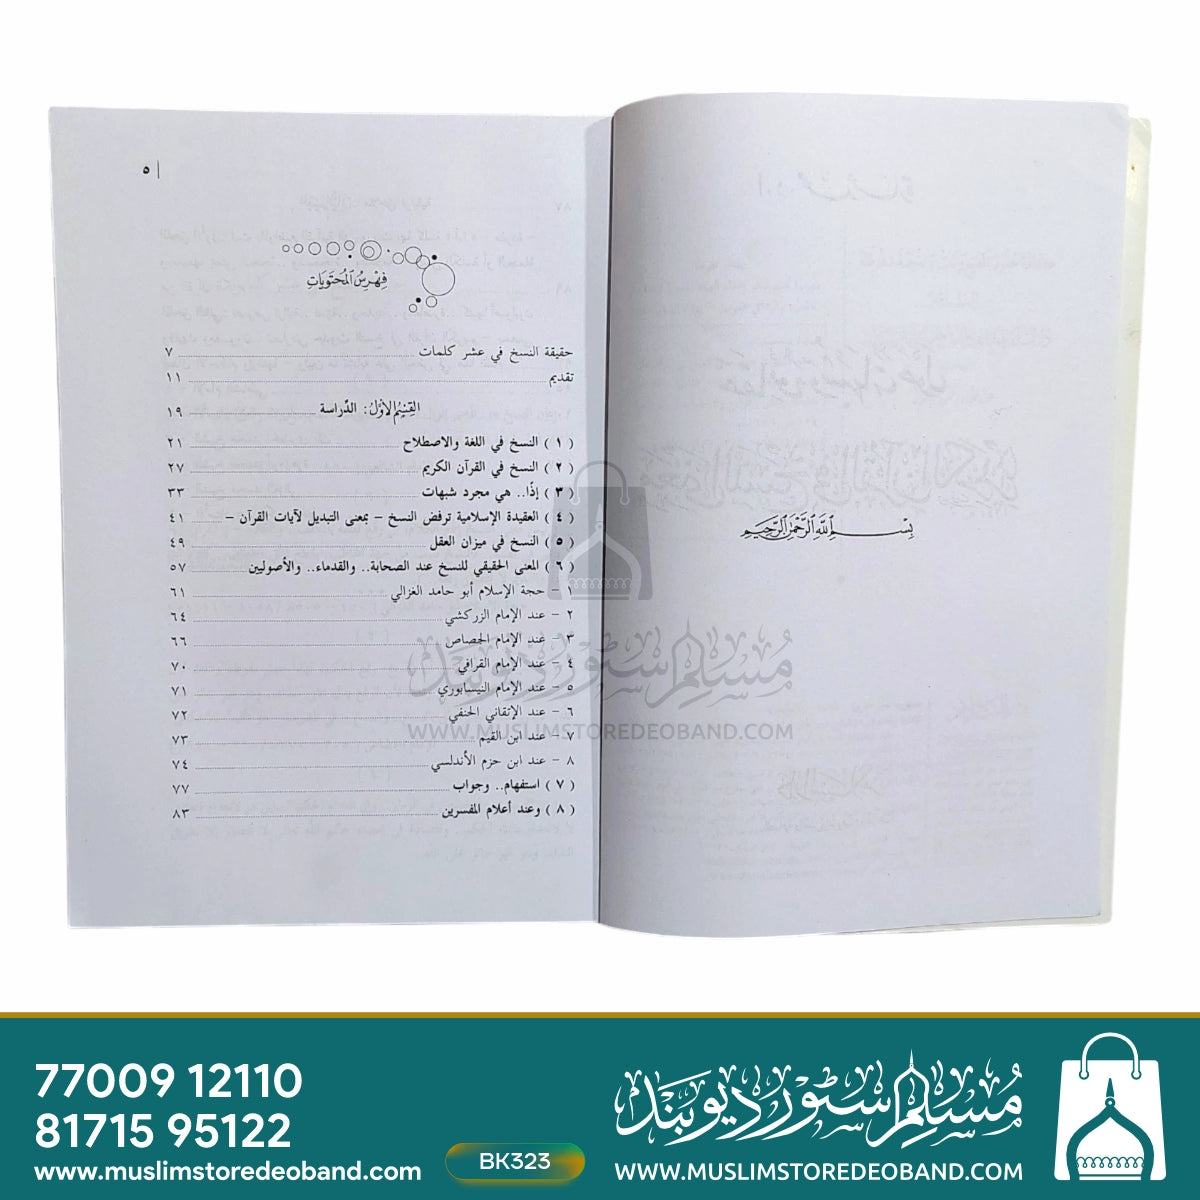 بِسْمِ اللَّهِ الرَّحْمَٰنِ الرَّحِيمِ
٥
فِهْرِسُ المُحْتَوَيَاتِ
حقيقة النسخ في عشر كلمات ٧
تقديم ١١
القِسْمُ الأوَّلُ: الدِّراسة ١٩
( ١ ) النسخ في اللغة والاصطلاح ٢١
( ٢ ) النسخ في القرآن الكريم ٢٧
( ٣ ) إذًا.. هي مجرد شبهات ٣٣
( ٤ ) العقيدة الإسلامية ترفض النسخ – بمعنى التبديل لآيات القرآن – ٤١
( ٥ ) النسخ في ميزان العقل ٤٩
( ٦ ) المعنى الحقيقي للنسخ عند الصحابة.. والقدماء.. والأصوليين ٥٧
١ – حجة الإسلام أبو حامد الغزالي ٦١
٢ – عند الإمام الزركشي ٦٤
٣ – عند الإمام الجصاص ٦٦
٤ – عند الإمام القرافي ٧٠
٥ – عند الإمام النيسابوري ٧١
٦ – عند الإتقاني الحنفي ٧٢
٧ – عند ابن القيم ٧٣
٨ – عند ابن حزم الأندلسي ٧٤
( ٧ ) استفهام.. وجواب ٧٧
( ٨ ) وعند أعلام المفسرين ٨٣
مسلم سٹور دیوبند
WWW.MUSLIMSTOREDEOBAND.COM
77009 12110
81715 95122
www.muslimstoredeoband.com
BK323
مسلم سٹور دیوبند
WWW.MUSLIMSTOREDEOBAND.COM